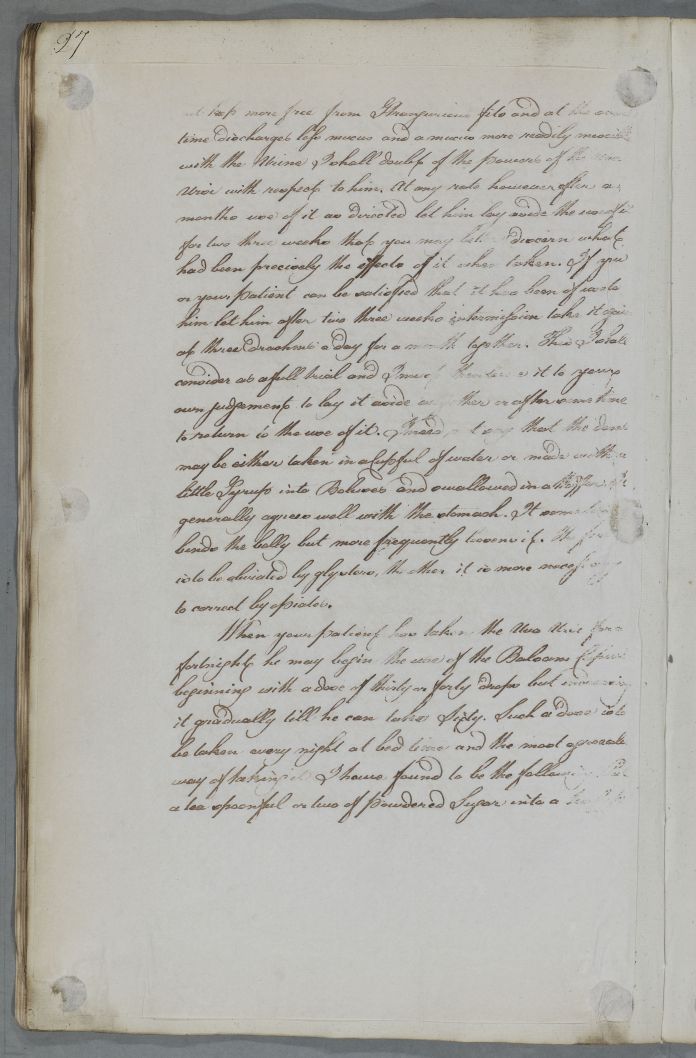 27
more free from Stranguries fits and at the same
time discharges less mucus and a mucus more readily miscible
with the Urine I shall doubt of the powers of the Uva
Ursi with respect to him. At any rate however after a
months use of it as directed let him lay aside the use of it
for two three weeks that you may better discern what
had been precisely the effects of it when taken. If you
or your patient can be satisfied that it has been of use to
him let him after two three weeks intermission take it again
at three drachms a day for a month together. This I shall
consider as a full trial and I must therefore leave it to your
own judgement to lay it aside altogether or after some time
to return to the use of it. I need not say that the dose
may be either taken in a Cupful of water or made with a
little Syrup into Boluses and swallowed in a It
generally agrees well with the stomach. It sometimes
binds the belly but more frequently loosens it. The former
is to be obviated by glysters, the other it is more necessary
to correct by opiates.
When your patient has taken the Uva Ursi for a
fortnight he may begin the use of the Balsam
beginning with a dose of thirty or forty drops but increasing
it gradually till he can take Sixty. Such a dose is to
be taken every night at bed time and the most agreeable
way of taking it I have found to be the following
a tea spoonful or two of powdered Sugar into a